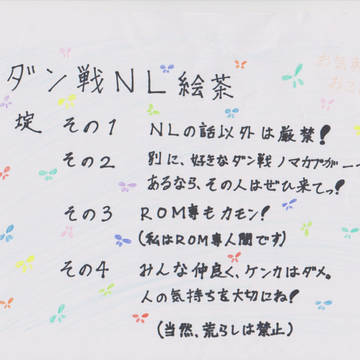 ダン戦NL絵茶
掟 その1 NLの話以外は厳禁!
その2 別に、好きなダン戦ノマカプが――
あるなら、その人はぜひ来てっ!
その3 ROM専もカモン!
(私はROM専人間です)
その4 みんな仲良く、ケンカはダメ。
人の気持ちを大切にね!
(当然、荒らしは禁止)